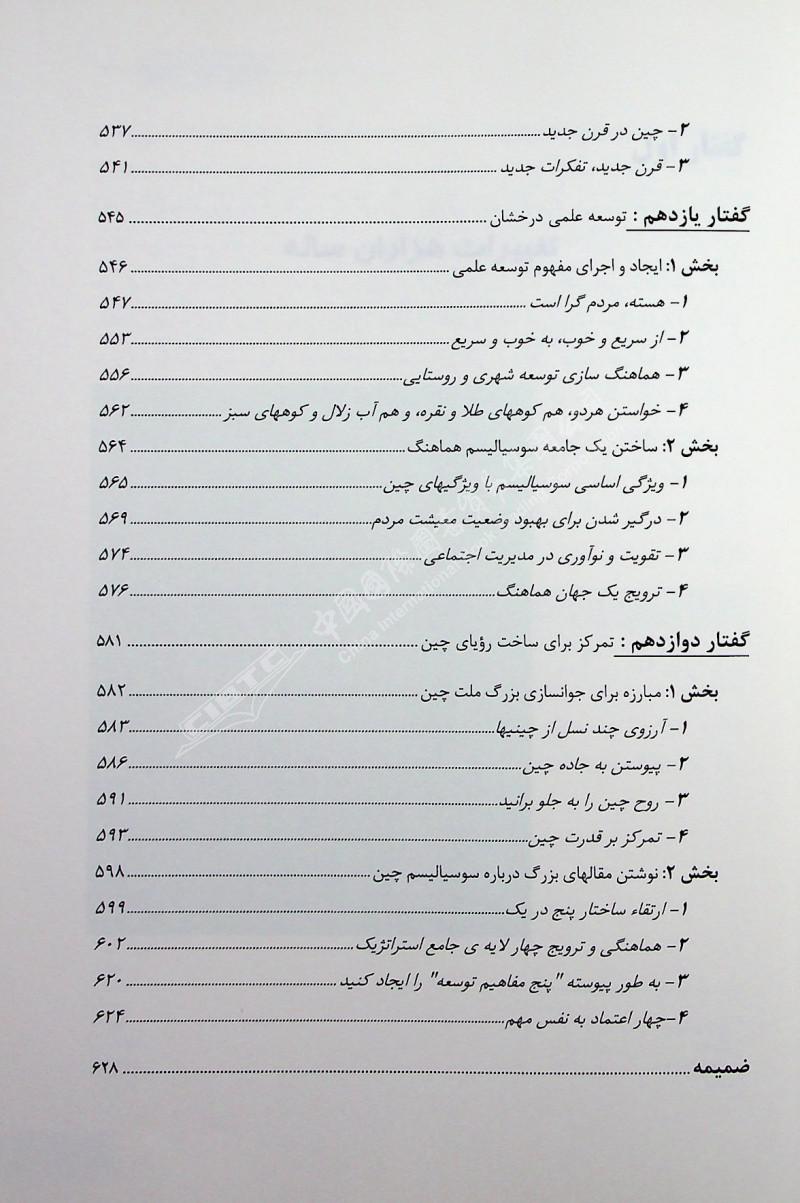 ۲- چین در قرن جدید ۵۳۷
۳- قرن جدید، تفکرات جدید ۵۴۱
گفتار یازدهم : توسعه علمی درخشان ۵۴۵
بخش ۱: ایجاد و اجرای مفهوم توسعه علمی ۵۴۶
۱- هسته، مردم گرا است ۵۴۷
۲- از سریع و خوب، به خوب و سریع ۵۵۳
۳- هماهنگ سازی توسعه شهری و روستایی ۵۵۶
۴- خواستن هردو، هم کوههای طلا و نقره، و هم آب زلال و کوههای سبز ۵۶۲
بخش ۲: ساختن یک جامعه سوسیالیسم هماهنگ ۵۶۴
۱- ویژگی اساسی سوسیالیسم با ویژگیهای چین ۵۶۵
۲- درگیر شدن برای بهبود وضعیت معیشت مردم ۵۶۹
۳- تقویت و نوآوری در مدیریت اجتماعی ۵۷۴
۴- ترویج یک جهان هماهنگ ۵۷۶
گفتار دوازدهم : تمرکز برای ساخت رؤیای چین ۵۸۱
بخش ۱: مبارزه برای جوانسازی بزرگ ملت چین ۵۸۲
۱- آرزوی چند نسل از چینیها ۵۸۳
۲- پیوستن به جاده چین ۵۸۶
۳- روح چین را به جلو برانید ۵۹۱
۴- تمرکز بر قدرت چین ۵۹۳
بخش ۲: نوشتن مقالهای بزرگ درباره سوسیالیسم چین ۵۹۸
۱- ارتقاء ساختار پنج در یک ۵۹۹
۲- هماهنگی و ترویج چهار لایه ی جامع استراتژیک ۶۰۲
۳- به طور پیوسته "پنج مفاهیم توسعه" را ایجاد کنید ۶۲۰
۴-چهار اعتماد به نفس مهم ۶۲۴
ضمیمه ۶۲۸
CIBTC
中国国际图书
China International